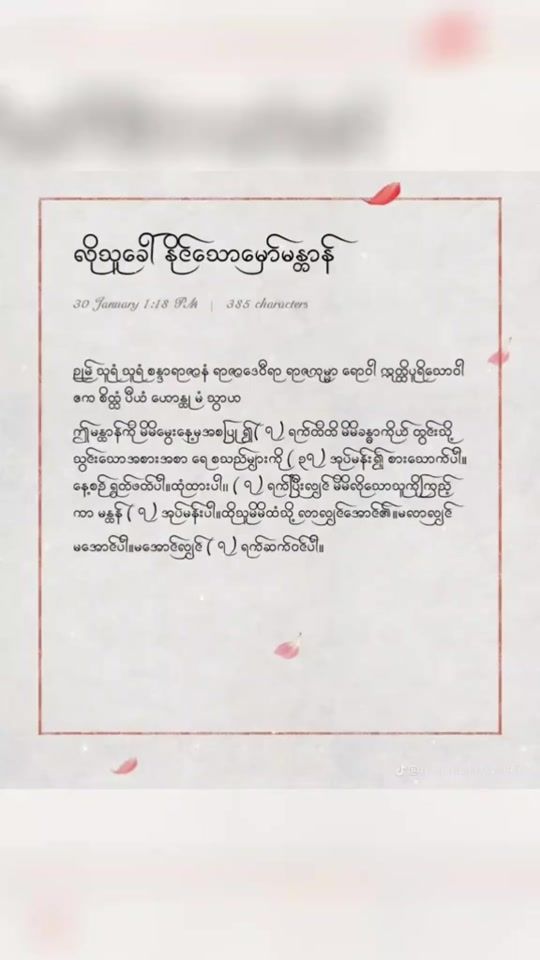 လိုသူခေါ်နိုင်သောမှော်မန္တာန်
30 January 1:18 PM | 385 characters
ဥုမ် သူရံ သူရံ စန္ဒာရာဇာနံ ရာဇာဒေဝီရာ ရာဇကုမ္မာ ရောဝါ ဣတ္ထိပူရိသောဝါ
ဧက စိတ္ထံ ပီယံ ဟောန္တု မံ သွာဟ
ဤမန္တာန်ကို မိမိမွေးနေ့မှအစပြု၍ ( ၇ ) ရက်တိတိ မိမိခန္ဓာကိုယ် တွင်းသို့
သွင်းသောအစားအစာ ရေ စသည်များကို ( ၃၇ ) အုပ်မန်း၍ စားသောက်ပါ။
နေ့စဉ် ရွတ်ဖတ်ပါ။ထုံထားပါ။ ( ၇ ) ရက်ပြီးလျှင် မိမိလိုသောသူကိုကြည့်
ကာ မန္တန် ( ၇ ) အုပ်မန်းပါ။ထိုသူမိမိထံသို့ လာလျှင်အောင်၏။မလာလျှင်
မအောင်ပါ။မအောင်လျှင် ( ၇ ) ရက်ဆက်ဝင်ပါ။